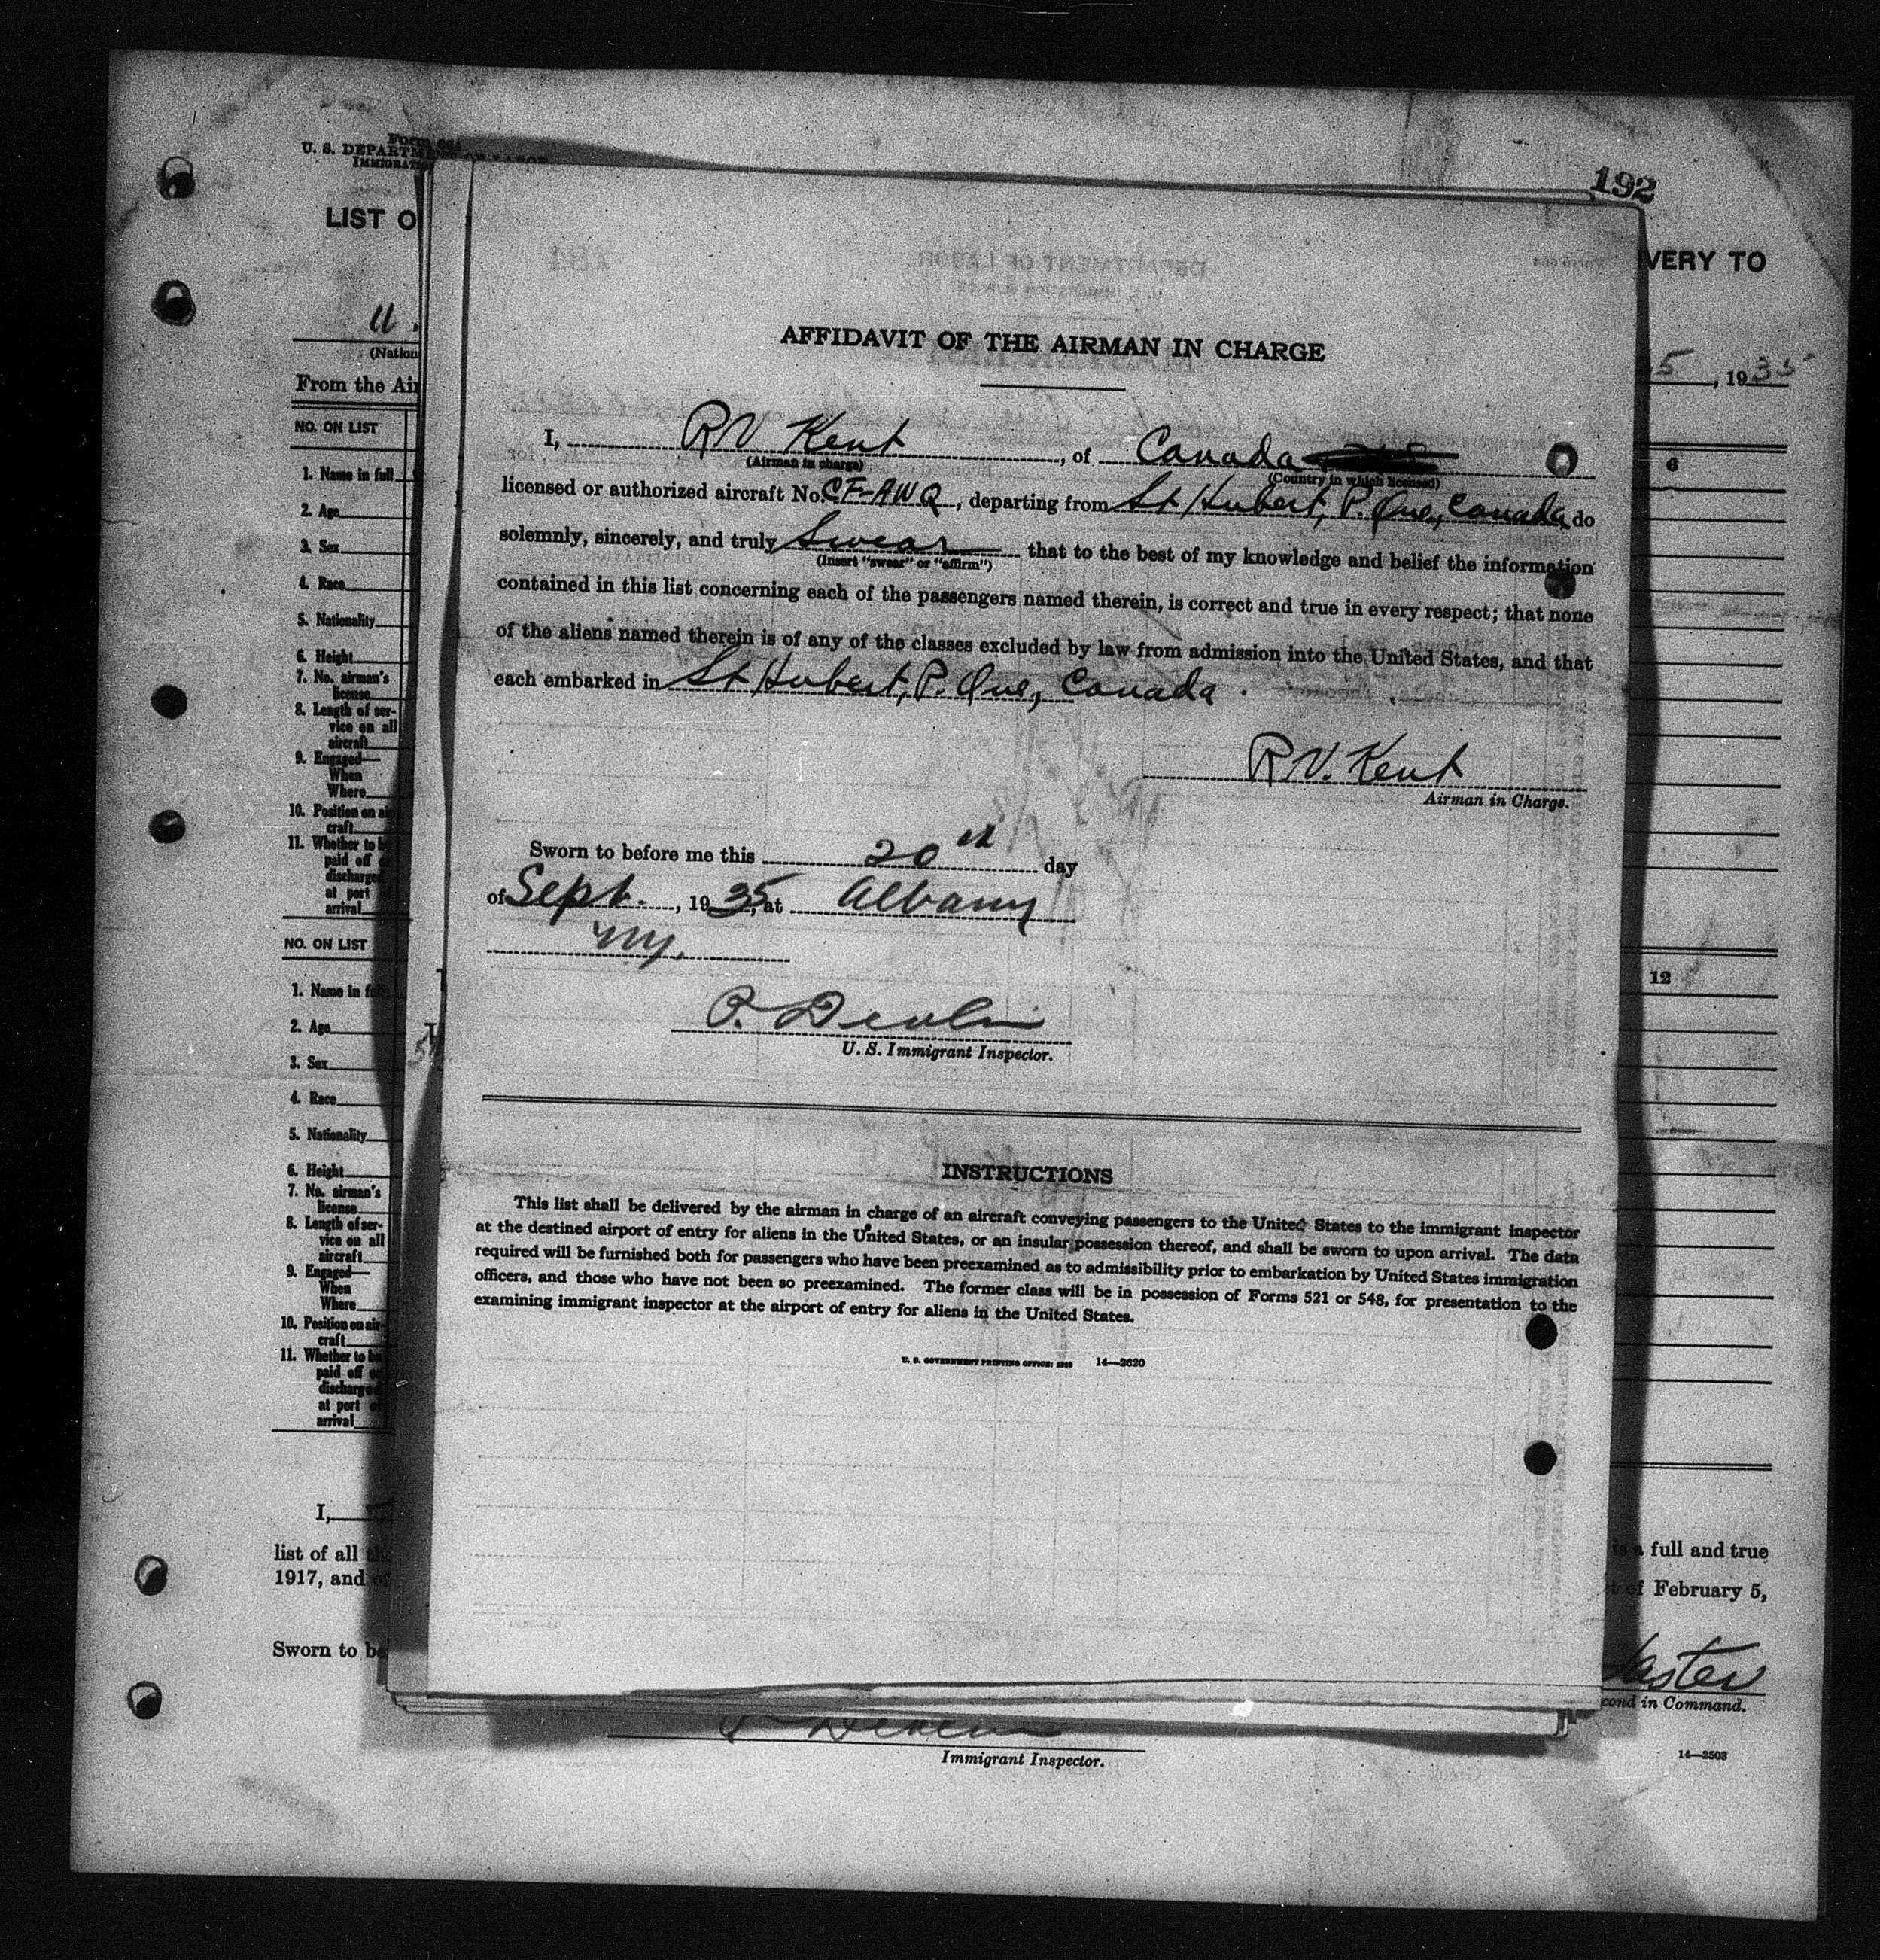 192
Form 664
U. S. DEPARTMENT OF LABOR
IMMIGRATI
LIST O
VERY TO
U.
(Nation
5, 1935
From the Air
AFFIDAVIT OF THE AIRMAN IN CHARGE
I, R V Kent, of Canada
(Airman in charge) (Country in which licensed)
licensed or authorized aircraft No. CF-AWQ, departing from St Hubert, P. Que, Canada do
solemnly, sincerely, and truly Swear that to the best of my knowledge and belief the information
(Insert "swear" or "affirm")
contained in this list concerning each of the passengers named therein, is correct and true in every respect; that none
of the aliens named therein is of any of the classes excluded by law from admission into the United States, and that
each embarked in St Hubert, P. Que, Canada.
R V. Kent
Airman in Charge.
Sworn to before me this 20th day
of Sept., 1935, at Albany
NY.
P. Devlin
U. S. Immigrant Inspector.
INSTRUCTIONS
This list shall be delivered by the airman in charge of an aircraft conveying passengers to the United States to the immigrant inspector
at the destined airport of entry for aliens in the United States, or an insular possession thereof, and shall be sworn to upon arrival. The data
required will be furnished both for passengers who have been preexamined as to admissibility prior to embarkation by United States immigration
officers, and those who have not been so preexamined. The former class will be in possession of Forms 521 or 548, for presentation to the
examining immigrant inspector at the airport of entry for aliens in the United States.
U. S. GOVERNMENT PRINTING OFFICE: 14—2620
NO. ON LIST
6
1. Name in full
2. Age
3. Sex
4. Race
5. Nationality
6. Height
7. No. airman's
license
8. Length of ser-
vice on all
aircraft
9. Engaged—
When
Where
10. Position on air
craft
11. Whether to b
paid off o
discharged
at port of
arrival
NO. ON LIST
12
1. Name in f
2. Age
3. Sex
4. Race
5. Nationality
6. Height
7. No. airman's
license
8. Length of ser-
vice on all
aircraft
9. Engaged—
When
Where
10. Position on air-
craft
11. Whether to be
paid off o
discharged
at port of
arrival
I,
list of all the
is a full and true
1917, and of
of February 5,
Sworn to be
cond in Command.
Immigrant Inspector.
14—2503